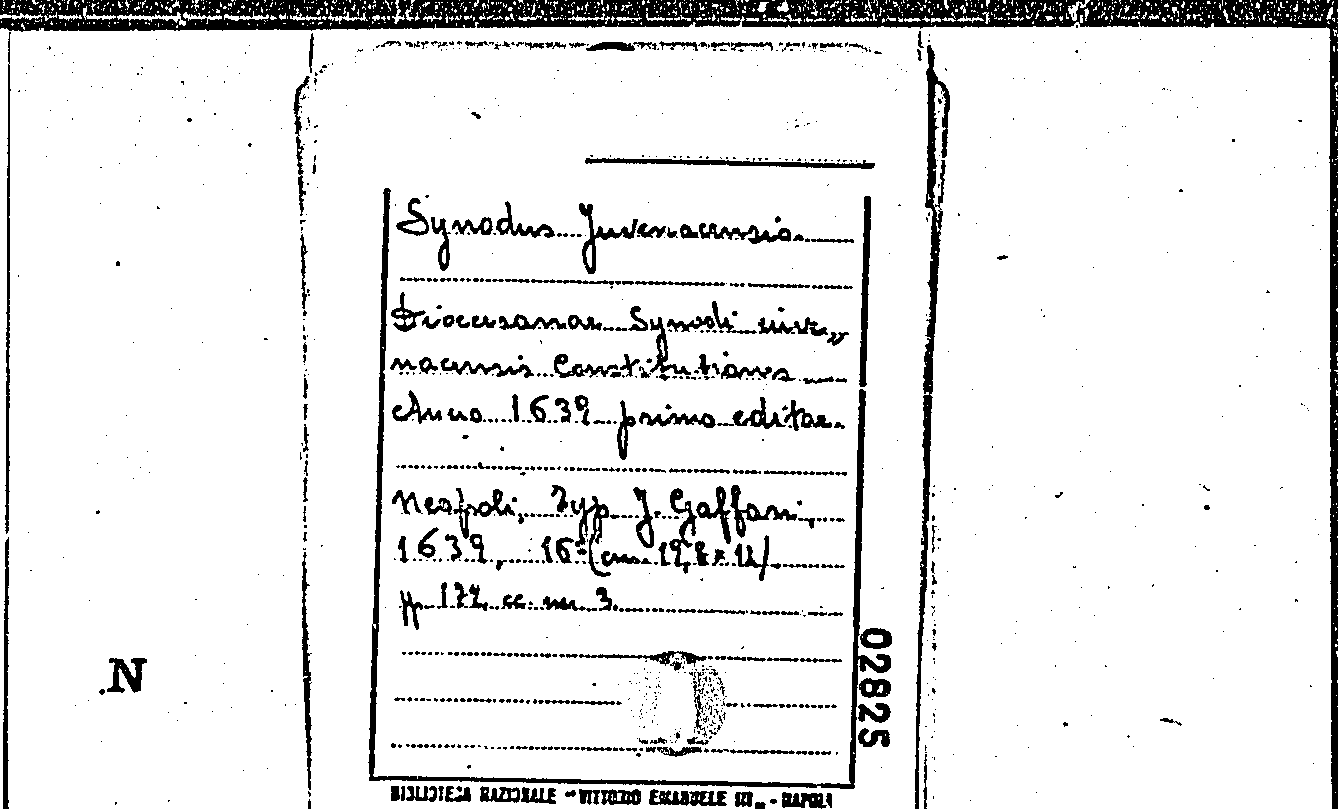 Synodus Juvenacensis.
Dioecesanae Synodi iuve„
nacensis Constitutiones
Anno 1639 primo editae.
Neapoli, Typ. J. Gaffari,
1639, 16º (cm. 19,8 x 12)
pp. 174, cc. nn. 3.
02825
N
BIBLIOTECA NAZIONALE "VITTORIO EMANUELE III" - NAPOLI